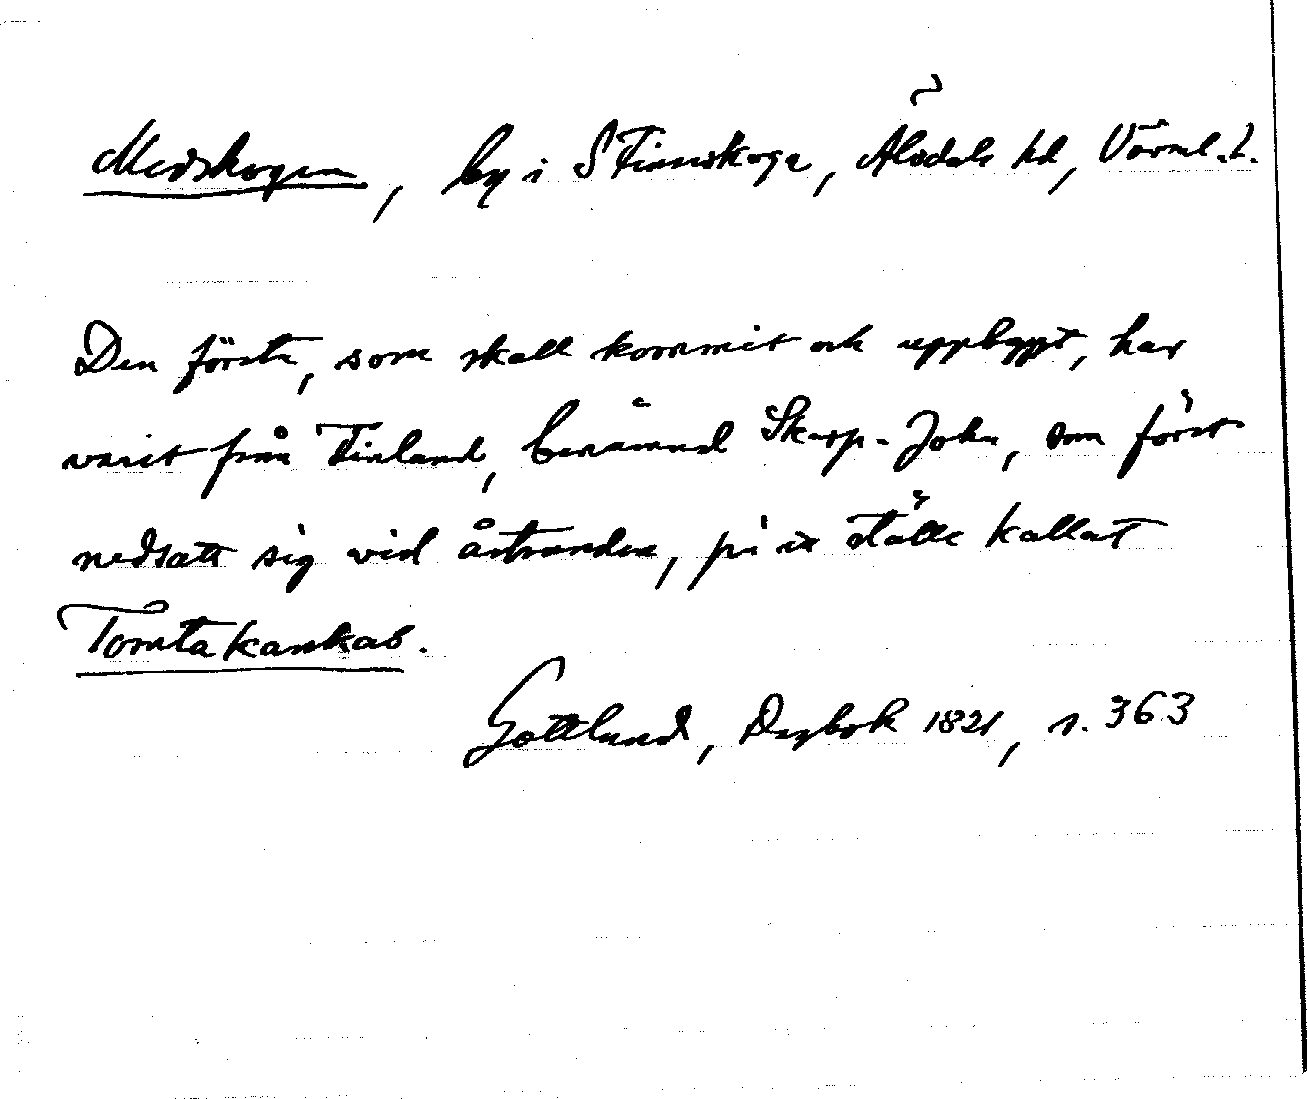 Medskogen, by i S Finnskoga, Älvdals hd, Värml. l.
Den förste, som skall kommit och uppbyggt, har
varit från Finland, benämnd Skarp-John, som först
nedsatt sig vid åstranden, på et ställe kallat
Tomtakankas.
Gottlund, Dagbok 1821, s. 363